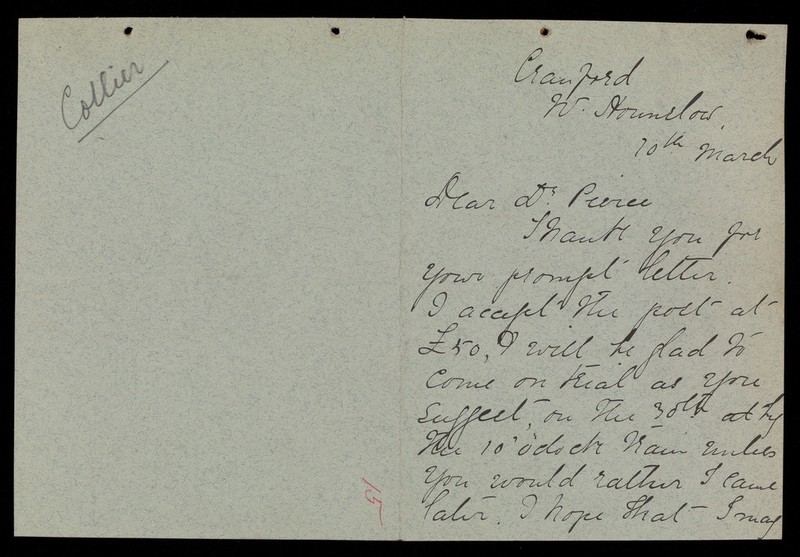 Collier
Cranford
W. Hounslow.
10th March
Dear Dr. Pierce
Thank you for
your prompt letter.
I accept the post at
£50, & will be glad to
come on trial as you
suggest, on the 30th by
the 10 o'clock train unless
you would rather I came
later. I hope that I may